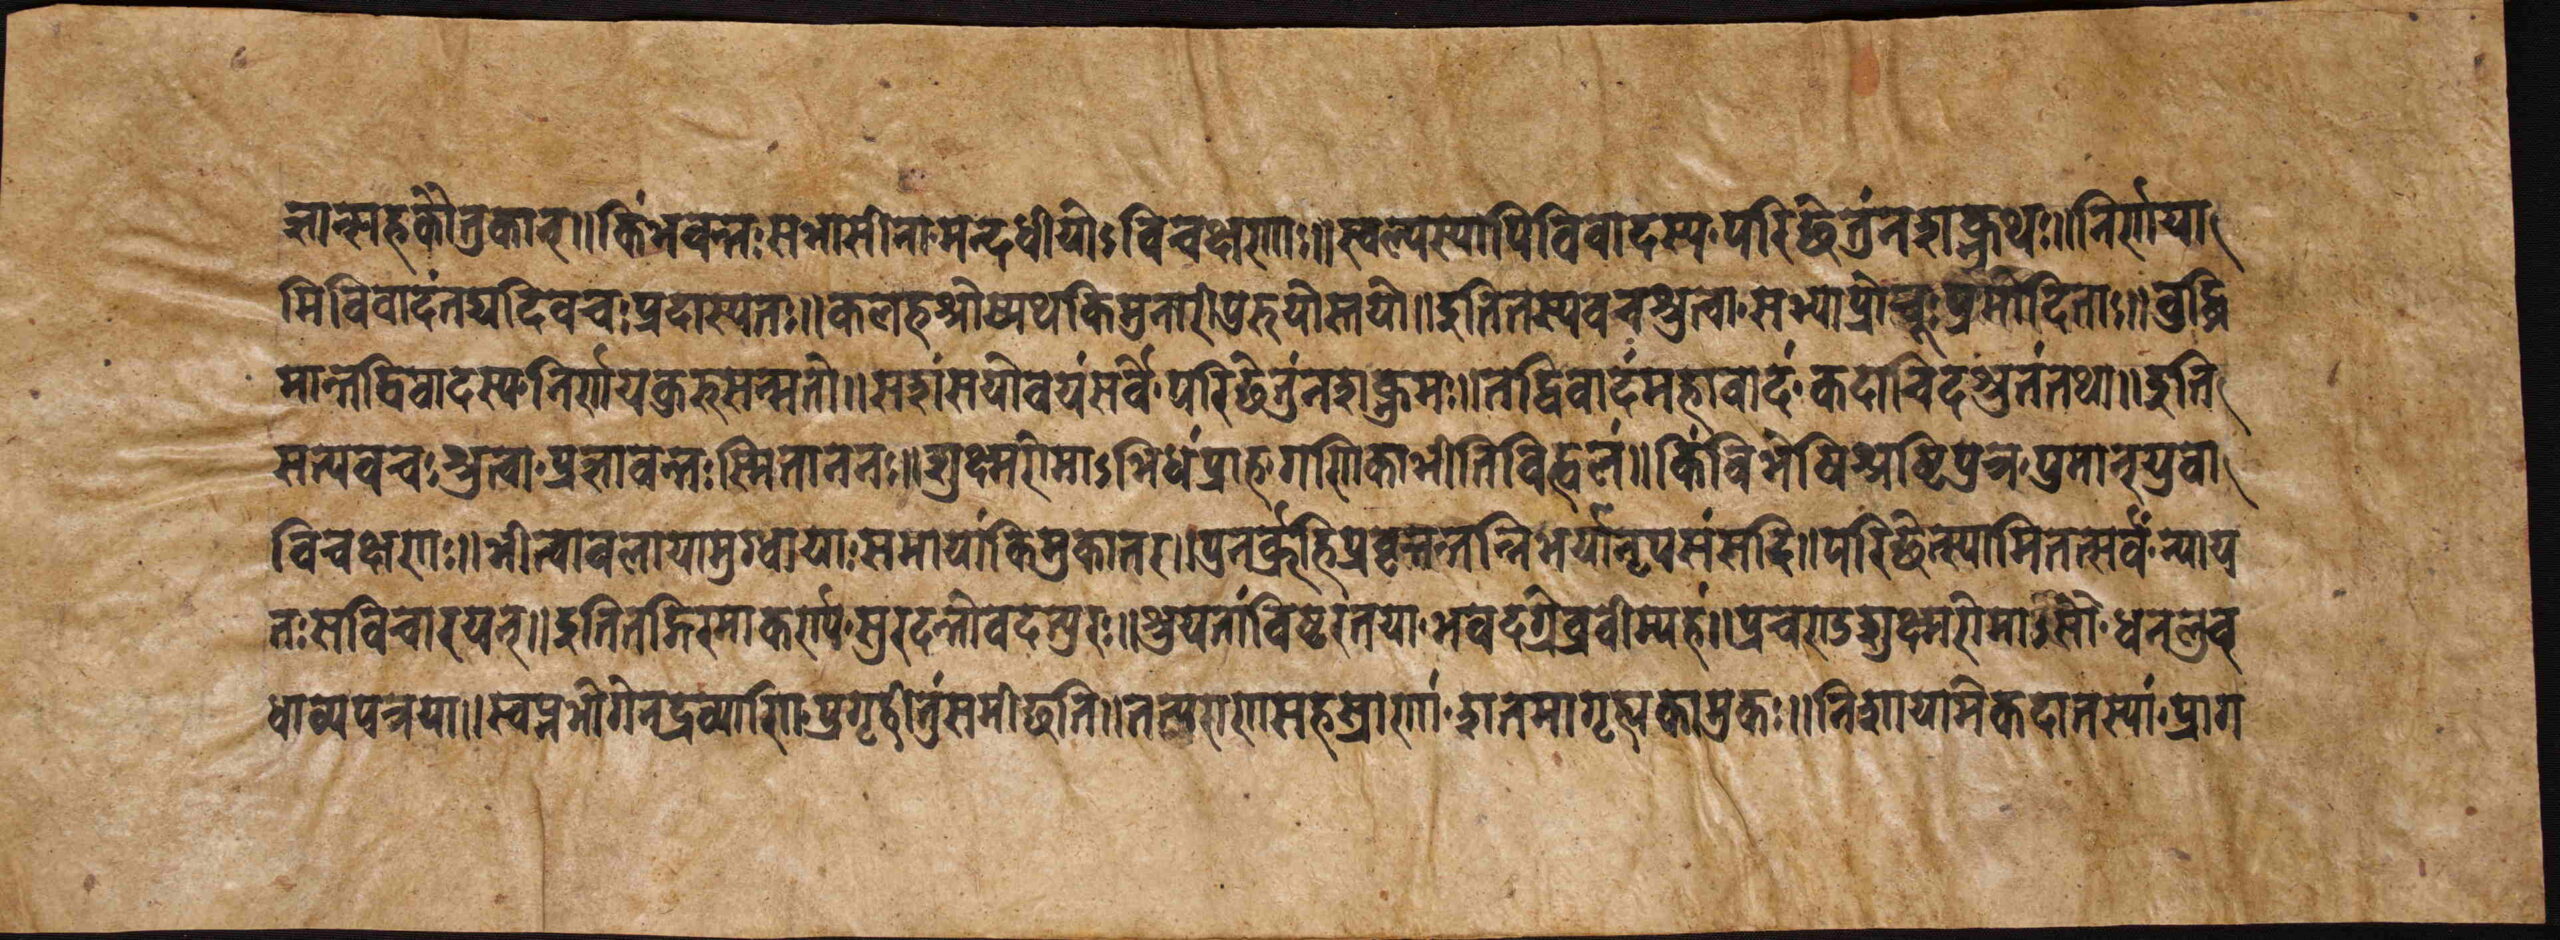 ञान्प्राहकौतुकान्॥किंभवन्तःसभासीनामन्दधीयोऽविचक्षणाः॥स्वल्पस्यापिविवादस्यपरिछेत्तुंनशक्नुथः॥निर्णया
मिविवादंतद्यदिवचःप्रदास्यतः॥कलहओष्यथकिमुनारीपुरुषयोस्तयो॥इतितस्यवचश्रुत्वासभ्याप्रोचूःप्रमोदिताः॥बुद्धि
मान्तद्विवादस्यनिर्णयकुरुसन्मतो॥सशंसयोवयंसर्वेपरिछेत्तुंनशक्नुमः॥तद्विवादंमहावादंकदाचिदश्रुतंतथा॥इति
सत्यवचःश्रुत्वाप्रज्ञावन्तःस्मितानन॥शुक्ष्मरोमाऽभिधंप्राहगणिकाभीतिविह्वलं॥किंविभेषिश्रेष्ठिपुत्रपुमान्युवा
विचक्षणः॥भीत्वाबलायामुग्धायाःसमायांकिमुकातर॥पुनर्ब्रूहिप्रवृत्तन्तन्निर्भयानृपसंसदि॥परिछेत्स्यामितत्सर्वंन्याय
तःसविचारयन्॥इतितद्गिरमाकर्ण्यसुरदन्तोवदत्पुरः॥श्रुयतांविष्टरंतयाभवदग्रेब्रवीम्यहं॥प्रचराडशुक्ष्मरोमाऽसौधनलुब्
धाव्यपत्रया॥स्वप्नभोगेनद्रव्याणिप्रगृहीतुंसमीछति॥तत्पणसहस्राणांशतमागृह्यकामुकः॥निशायामेकदातस्यांप्राग